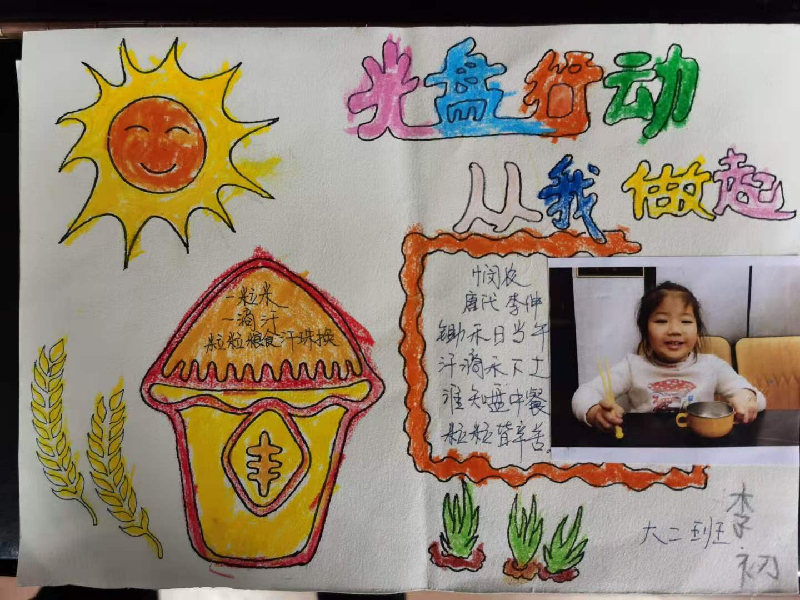 光盘行动
从我做起
一粒米
一滴汗
粒粒粮食汗珠换
悯农
唐代 李伸
锄禾日当午
汗滴禾下土
谁知盘中餐
粒粒皆辛苦。
丰
大二班
李初